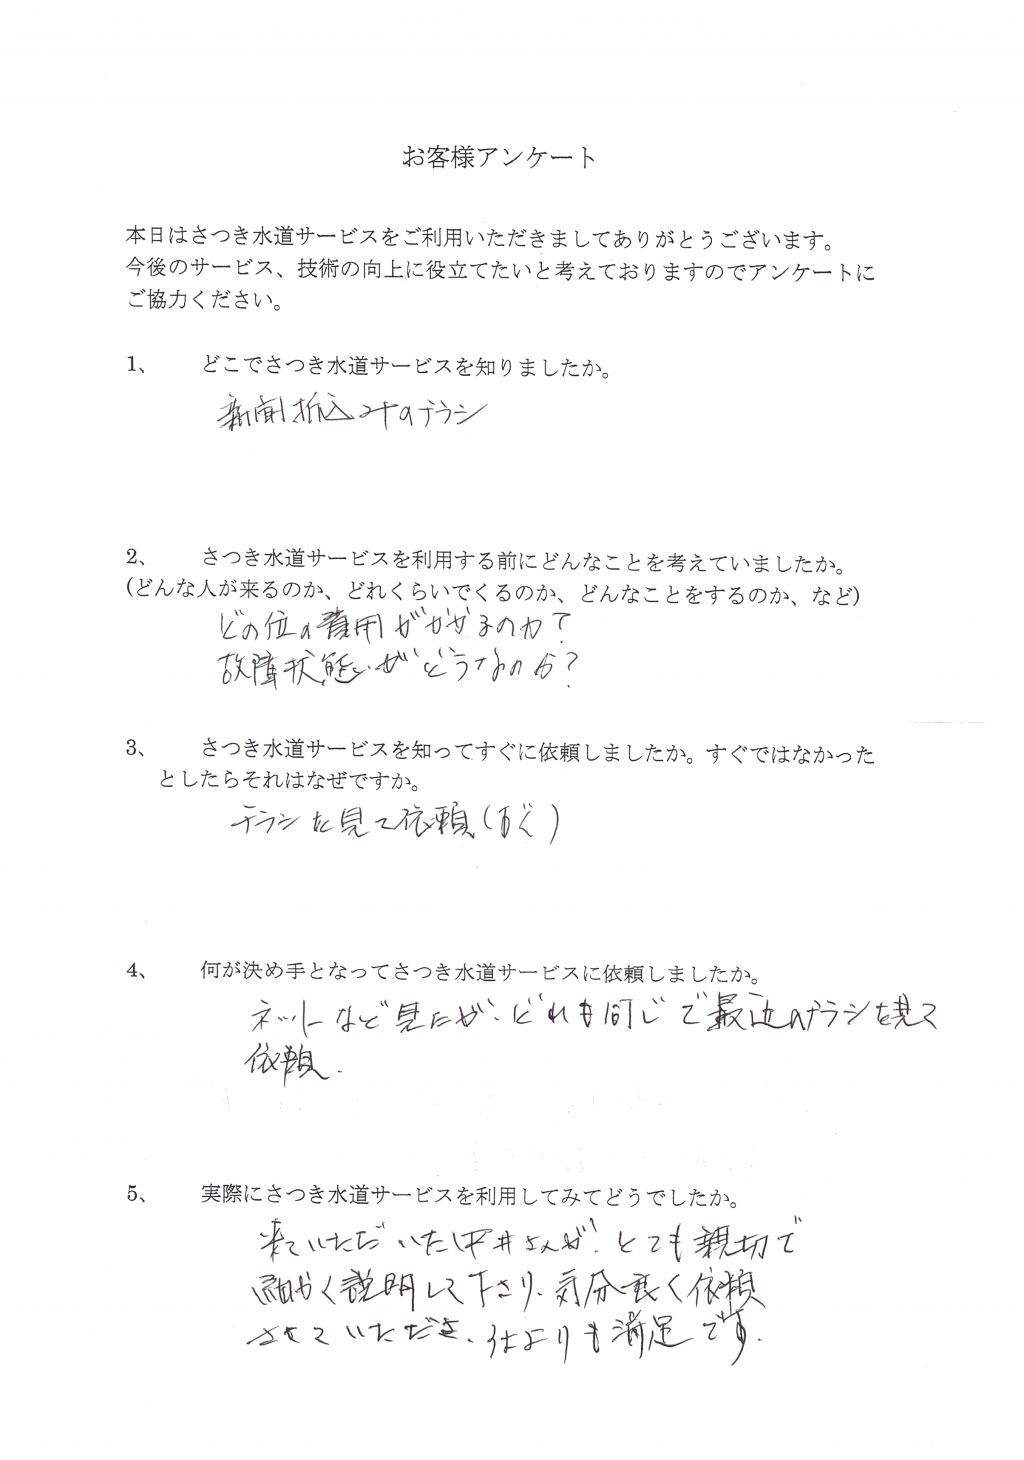 お客様アンケート
本日はさつき水道サービスをご利用いただきましてありがとうございます。
今後のサービス、技術の向上に役立てたいと考えておりますのでアンケートに
ご協力ください。
1、 どこでさつき水道サービスを知りましたか。
新聞折込みのチラシ
2、 さつき水道サービスを利用する前にどんなことを考えていましたか。
(どんな人が来るのか、どれくらいでくるのか、どんなことをするのか、など)
どの位の費用がかかるのか?
故障状態がどうなのか?
3、 さつき水道サービスを知ってすぐに依頼しましたか。すぐではなかった
としたらそれはなぜですか。
チラシを見て依頼(すぐ)
4、 何が決め手となってさつき水道サービスに依頼しましたか。
ネットなど見たが、どれも同じで最近のチラシを見て
依頼.
5、 実際にさつき水道サービスを利用してみてどうでしたか。
来ていただいた 井さんが、とても親切で
細かく説明して下さり、気分良く依頼
させていただき、 よりも満足です.